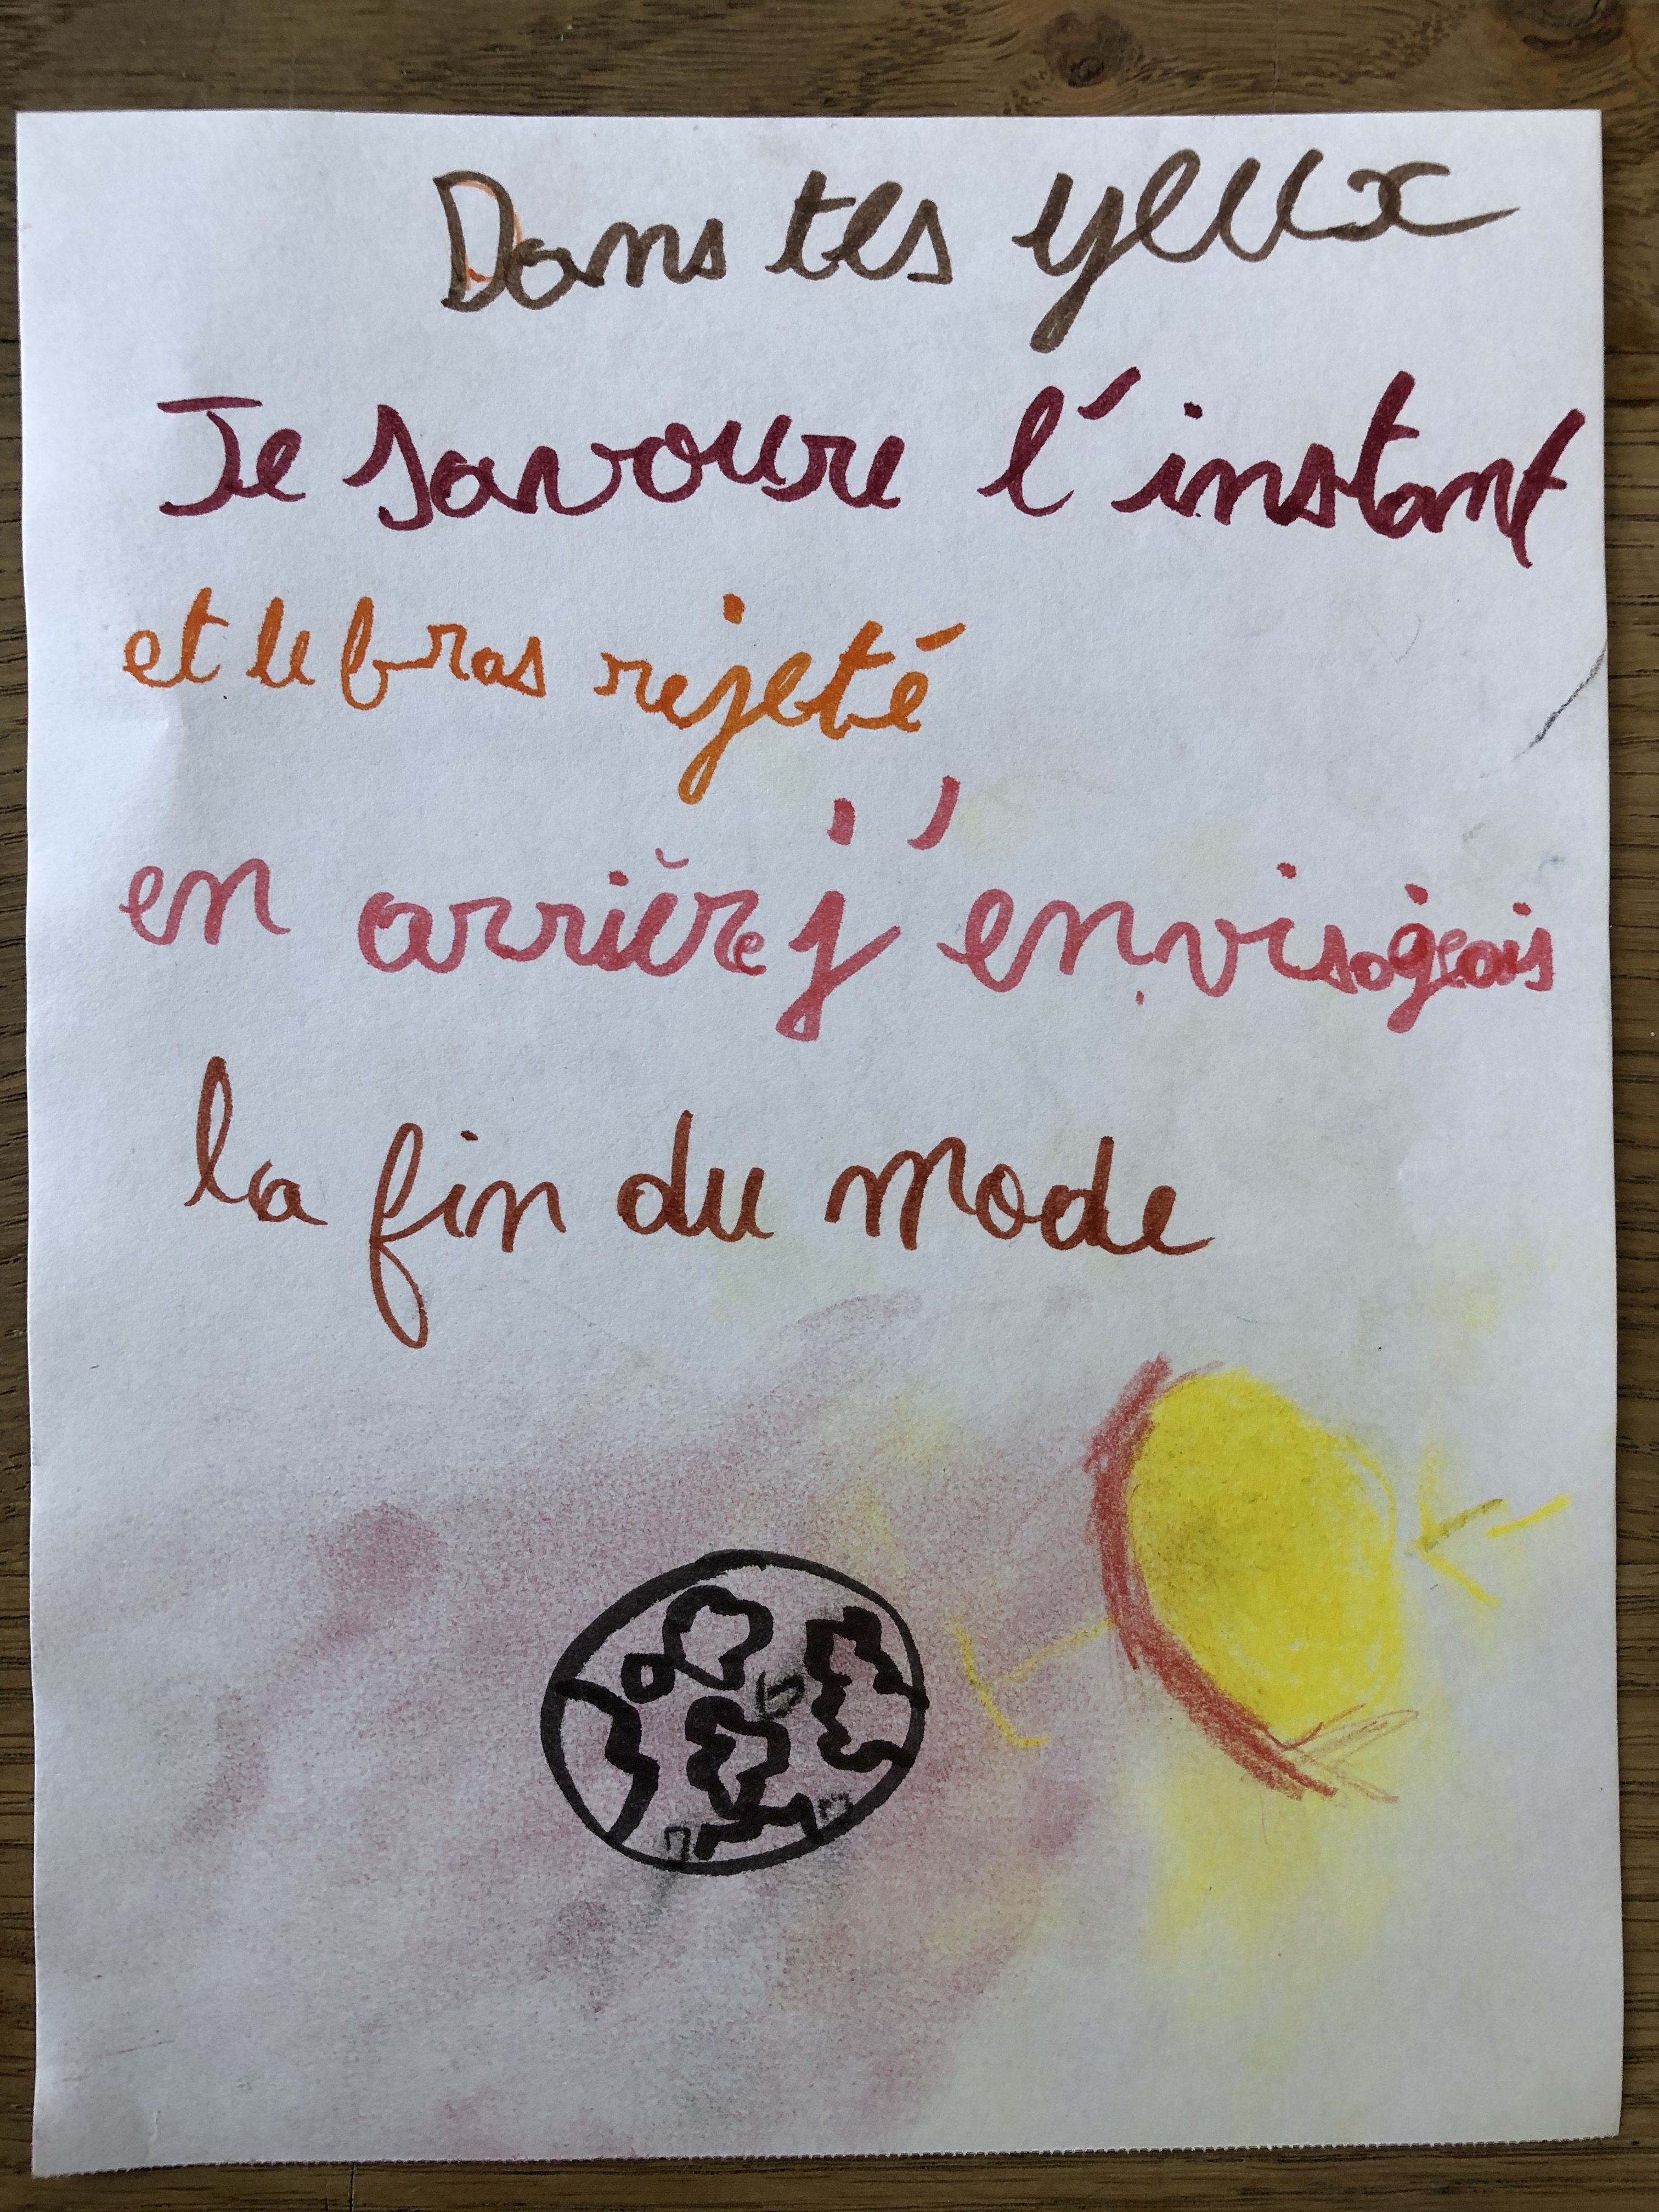 Dans tes yeux
Je savoure l'instant
et le bras rejeté
en arrière j'envisageais
la fin du mode